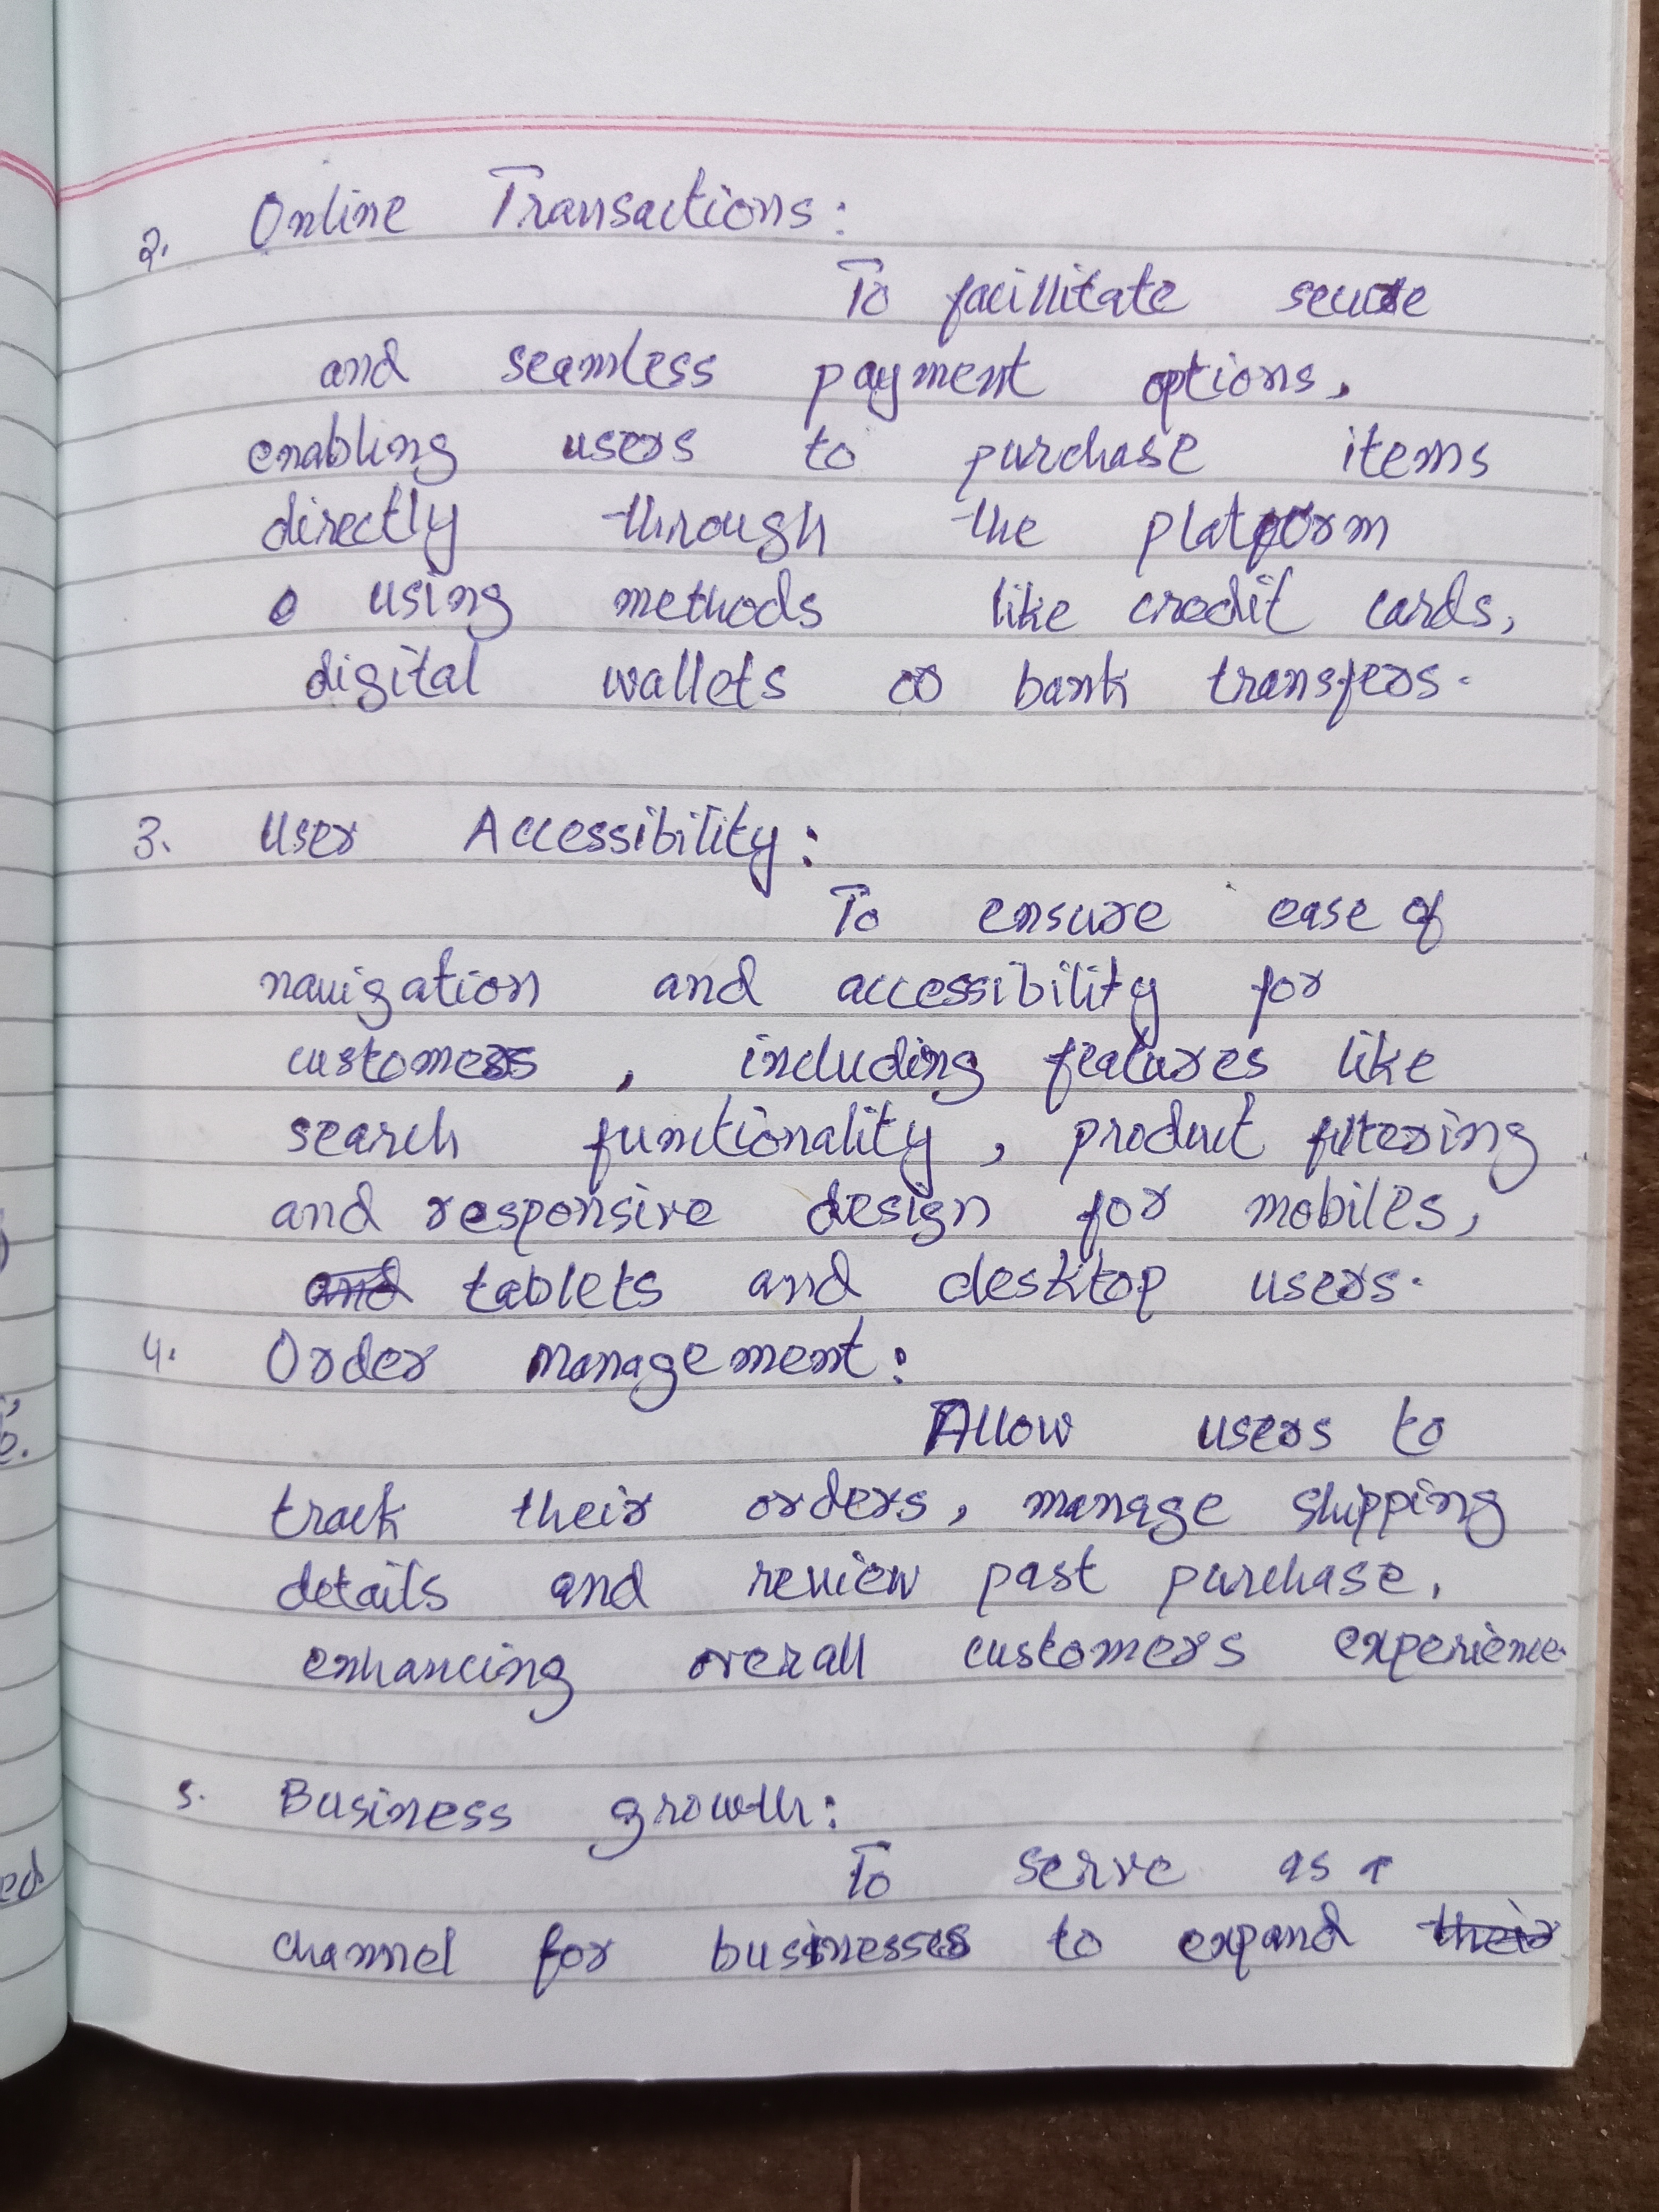 2. Online Transactions:
To facillitate secure
and seamless payment options,
enabling users to purchase items
directly through the platform
using methods like credit cards,
digital wallets or bank transfers.
3. User Accessibility:
To ensure ease of
navigation and accessibility for
customers, including features like
search functionality, product filtering
and responsive design for mobiles,
and tablets and desktop users.
4. Order Management:
Allow users to
track their orders, manage shipping
details and review past purchase,
enhancing overall customers experience.
5. Business growth:
To serve as a
channel for businesses to expand their
ed